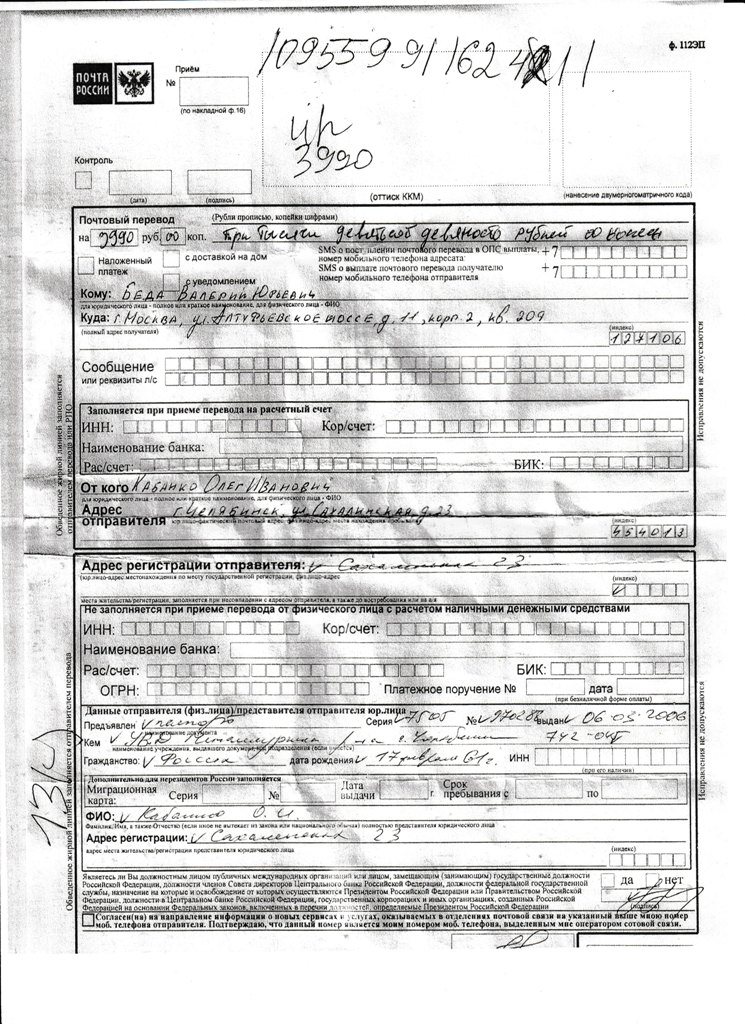 ф. 112ЭП
ПОЧТА РОССИИ
Приём
№
(по накладной ф.16)
ир
3990
Контроль
(дата) (подпись) (оттиск ККМ) (нанесение двумерноматричного кода)
Почтовый перевод (Рубли прописью, копейки цифрами)
на 3990 руб. 00 коп. Три тысячи девятьсот девяносто рублей 00 копеек
Наложенный платеж
с доставкой на дом
с уведомлением
SMS о поступлении почтового перевода в ОПС выплаты, +7
номер мобильного телефона адресата:
SMS о выплате почтового перевода получателю +7
номер мобильного телефона отправителя
Кому: Беда Валерий Юрьевич
для юридического лица - полное или краткое наименование, для физического лица - ФИО
Куда: г. Москва, ул. Алтуфьевское шоссе, д. 11, корп. 2, кв. 209
(полный адрес получателя) (индекс)
127106
Сообщение
или реквизиты л/с
Заполняется при приеме перевода на расчетный счет
ИНН: Кор/счет:
Наименование банка:
Рас/счет: БИК:
От кого Кабанко Олег Иванович
для юридического лица - полное или краткое наименование, для физического лица - ФИО
Адрес отправителя г. Челябинск, ул. Сахалинская д. 23
(индекс)
454013
Обведенное жирной линией заполняется отправителем перевода или РПО
Исправления не допускаются
Адрес регистрации отправителя: v Сахалинская 23
(индекс)
места жительства/регистрации, заполняется при несовпадении с адресом отправителя, а также до востребования или на а/я
Не заполняется при приеме перевода от физического лица с расчетом наличными денежными средствами
ИНН: Кор/счет:
Наименование банка:
Рас/счет: БИК:
ОГРН: Платежное поручение № дата
(при безналичной форме оплаты)
Данные отправителя (физ.лица)/представителя отправителя юр.лица
Предъявлен v паспорт Серия v 7505 № выдан v 06-05-2006
наименование документа
Кем v УВД г. Челябинска
Гражданство: v Россия дата рождения v 17 февраля 61г. ИНН
(при его наличии)
Дополнительно для нерезидентов России заполняется
Миграционная карта: Серия № Дата выдачи г. Срок пребывания с по
ФИО: v Кабанко О. И.
Фамилия, Имя, а также Отчество (если иное не вытекает из закона или национального обычая) полностью представителя юридического лица
Адрес регистрации: v Сахалинская 23
адрес места жительства/регистрации представителя юридического лица (индекс)
Обведенное жирной линией заполняется отправителем перевода
Исправления не допускаются
Являетесь ли Вы должностным лицом публичных международных организаций или лицом, замещающим (занимающим) государственные должности
Российской Федерации, должности членов Совета директоров Центрального банка Российской Федерации, должности федеральной государственной
службы, назначение на которые и освобождение от которых осуществляется Президентом Российской Федерации или Правительством Российской
Федерации, должности в Центральном банке Российской Федерации, государственных корпорациях и иных организациях, созданных Российской
Федерацией на основании Федеральных законов, включенных в перечни должностей, определяемые Президентом Российской Федерации
да нет
(подпись)
Согласен(на) на направление информации о новых сервисах и услугах, оказываемых в отделениях почтовой связи на указанный выше мною номер
моб. телефона отправителя. Подтверждаю, что данный номер является моим номером моб. телефона, выделенным мне оператором сотовой связи.